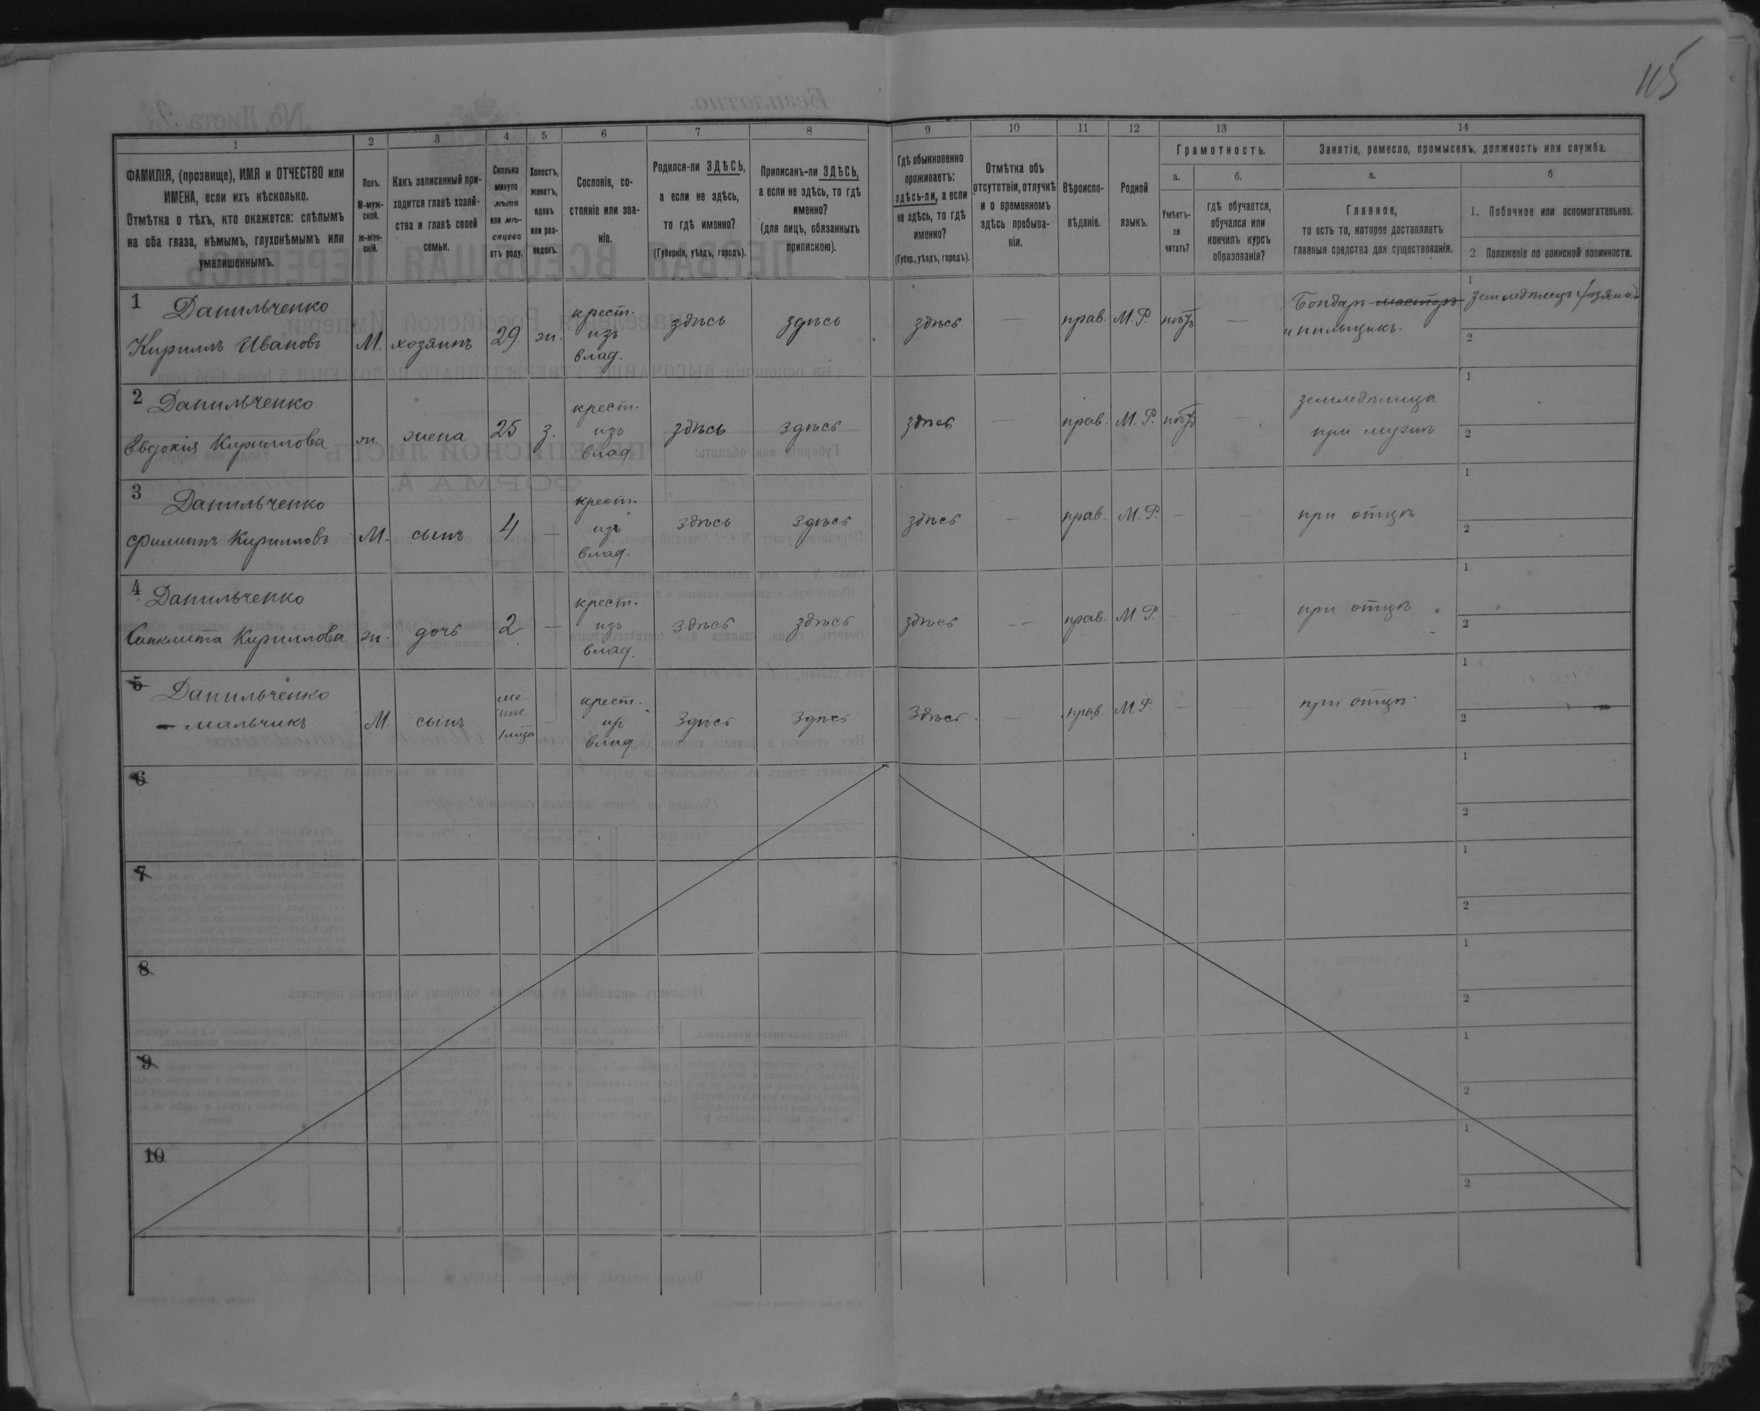 115
1
2
3
4
5
6
7
8
9
10
11
12
13
14
ФАМИЛІЯ, (прозвище), ИМЯ и ОТЧЕСТВО или
ИМЕНА, если ихъ нѣсколько.
Отмѣтка о тѣхъ, кто окажется: слѣпымъ
на оба глаза, нѣмымъ, глухонѣмымъ или
умалишеннымъ.
Полъ.
М-муж-
ской.
ж-жен-
скій.
Какъ записанный при-
ходится главѣ хозяй-
ства и главѣ своей
семьи.
Сколько
минуло
лѣтъ
или мѣ-
сяцевъ
отъ роду.
Холостъ,
женатъ,
вдовъ
или раз-
веденъ.
Сословіе, со-
стояніе или зва-
ніе.
Родился-ли ЗДѢСЬ,
а если не здѣсь,
то гдѣ именно?
(Губернія, уѣздъ, городъ).
Приписанъ-ли ЗДѢСЬ,
а если не здѣсь, то гдѣ
именно?
(для лицъ, обязанныхъ
припискою).
Гдѣ обыкновенно
проживаетъ:
здѣсь-ли, а если
не здѣсь, то гдѣ
именно?
(Губер., уѣздъ, городъ).
Отмѣтка объ
отсутствіи, отлучкѣ
и о временномъ
здѣсь пребыва-
ніи.
Вѣроиспо-
вѣданіе.
Родной
языкъ.
Грамотность.
а.
Умѣетъ-
ли
читать?
б.
гдѣ обучается,
обучался или
кончилъ курсъ
образованія?
Занятіе, ремесло, промыселъ, должность или служба.
а.
Главное,
то есть то, которое доставляетъ
главныя средства для существованія.
б
1. Побочное или вспомогательное.
2 Положеніе по воинской повинности.
1 Данильченко
Кириллъ Ивановъ
М.
хозяинъ
29.
ж.
крест.
изъ
влад.
здѣсь
здѣсь
здѣсь
—
прав.
М. Р.
нѣтъ
—
Бондарь мастеръ
и пильщикъ.
1
земледѣлецъ
2
2 Данильченко
Евдокія Кириллова
ж.
жена
25
з.
крест.
изъ
влад
здѣсь
здѣсь
здѣсь
—
прав.
М. Р.
нѣтъ
—
земледѣлица
при мужѣ
1
2
3 Данильченко
Филиппъ Кирилловъ
М.
сынъ
4
—
крест.
изъ
влад.
здѣсь
здѣсь
здѣсь
—
прав.
М. Р.
—
—
при отцѣ
1
2
4 Данильченко
Синклита Кириллова
ж.
дочь
2
—
крест.
изъ
влад.
здѣсь
здѣсь
здѣсь
—
прав.
М. Р.
—
—
при отцѣ
1
2
5 Данильченко
— мальчикъ
М.
сынъ
—
крест.
из
влад
здѣсь
здѣсь
здѣсь
—
прав.
М. Р
—
—
при отцѣ
1
2
6
1
2
7
1
2
8
1
2
9
1
2
10
1
2